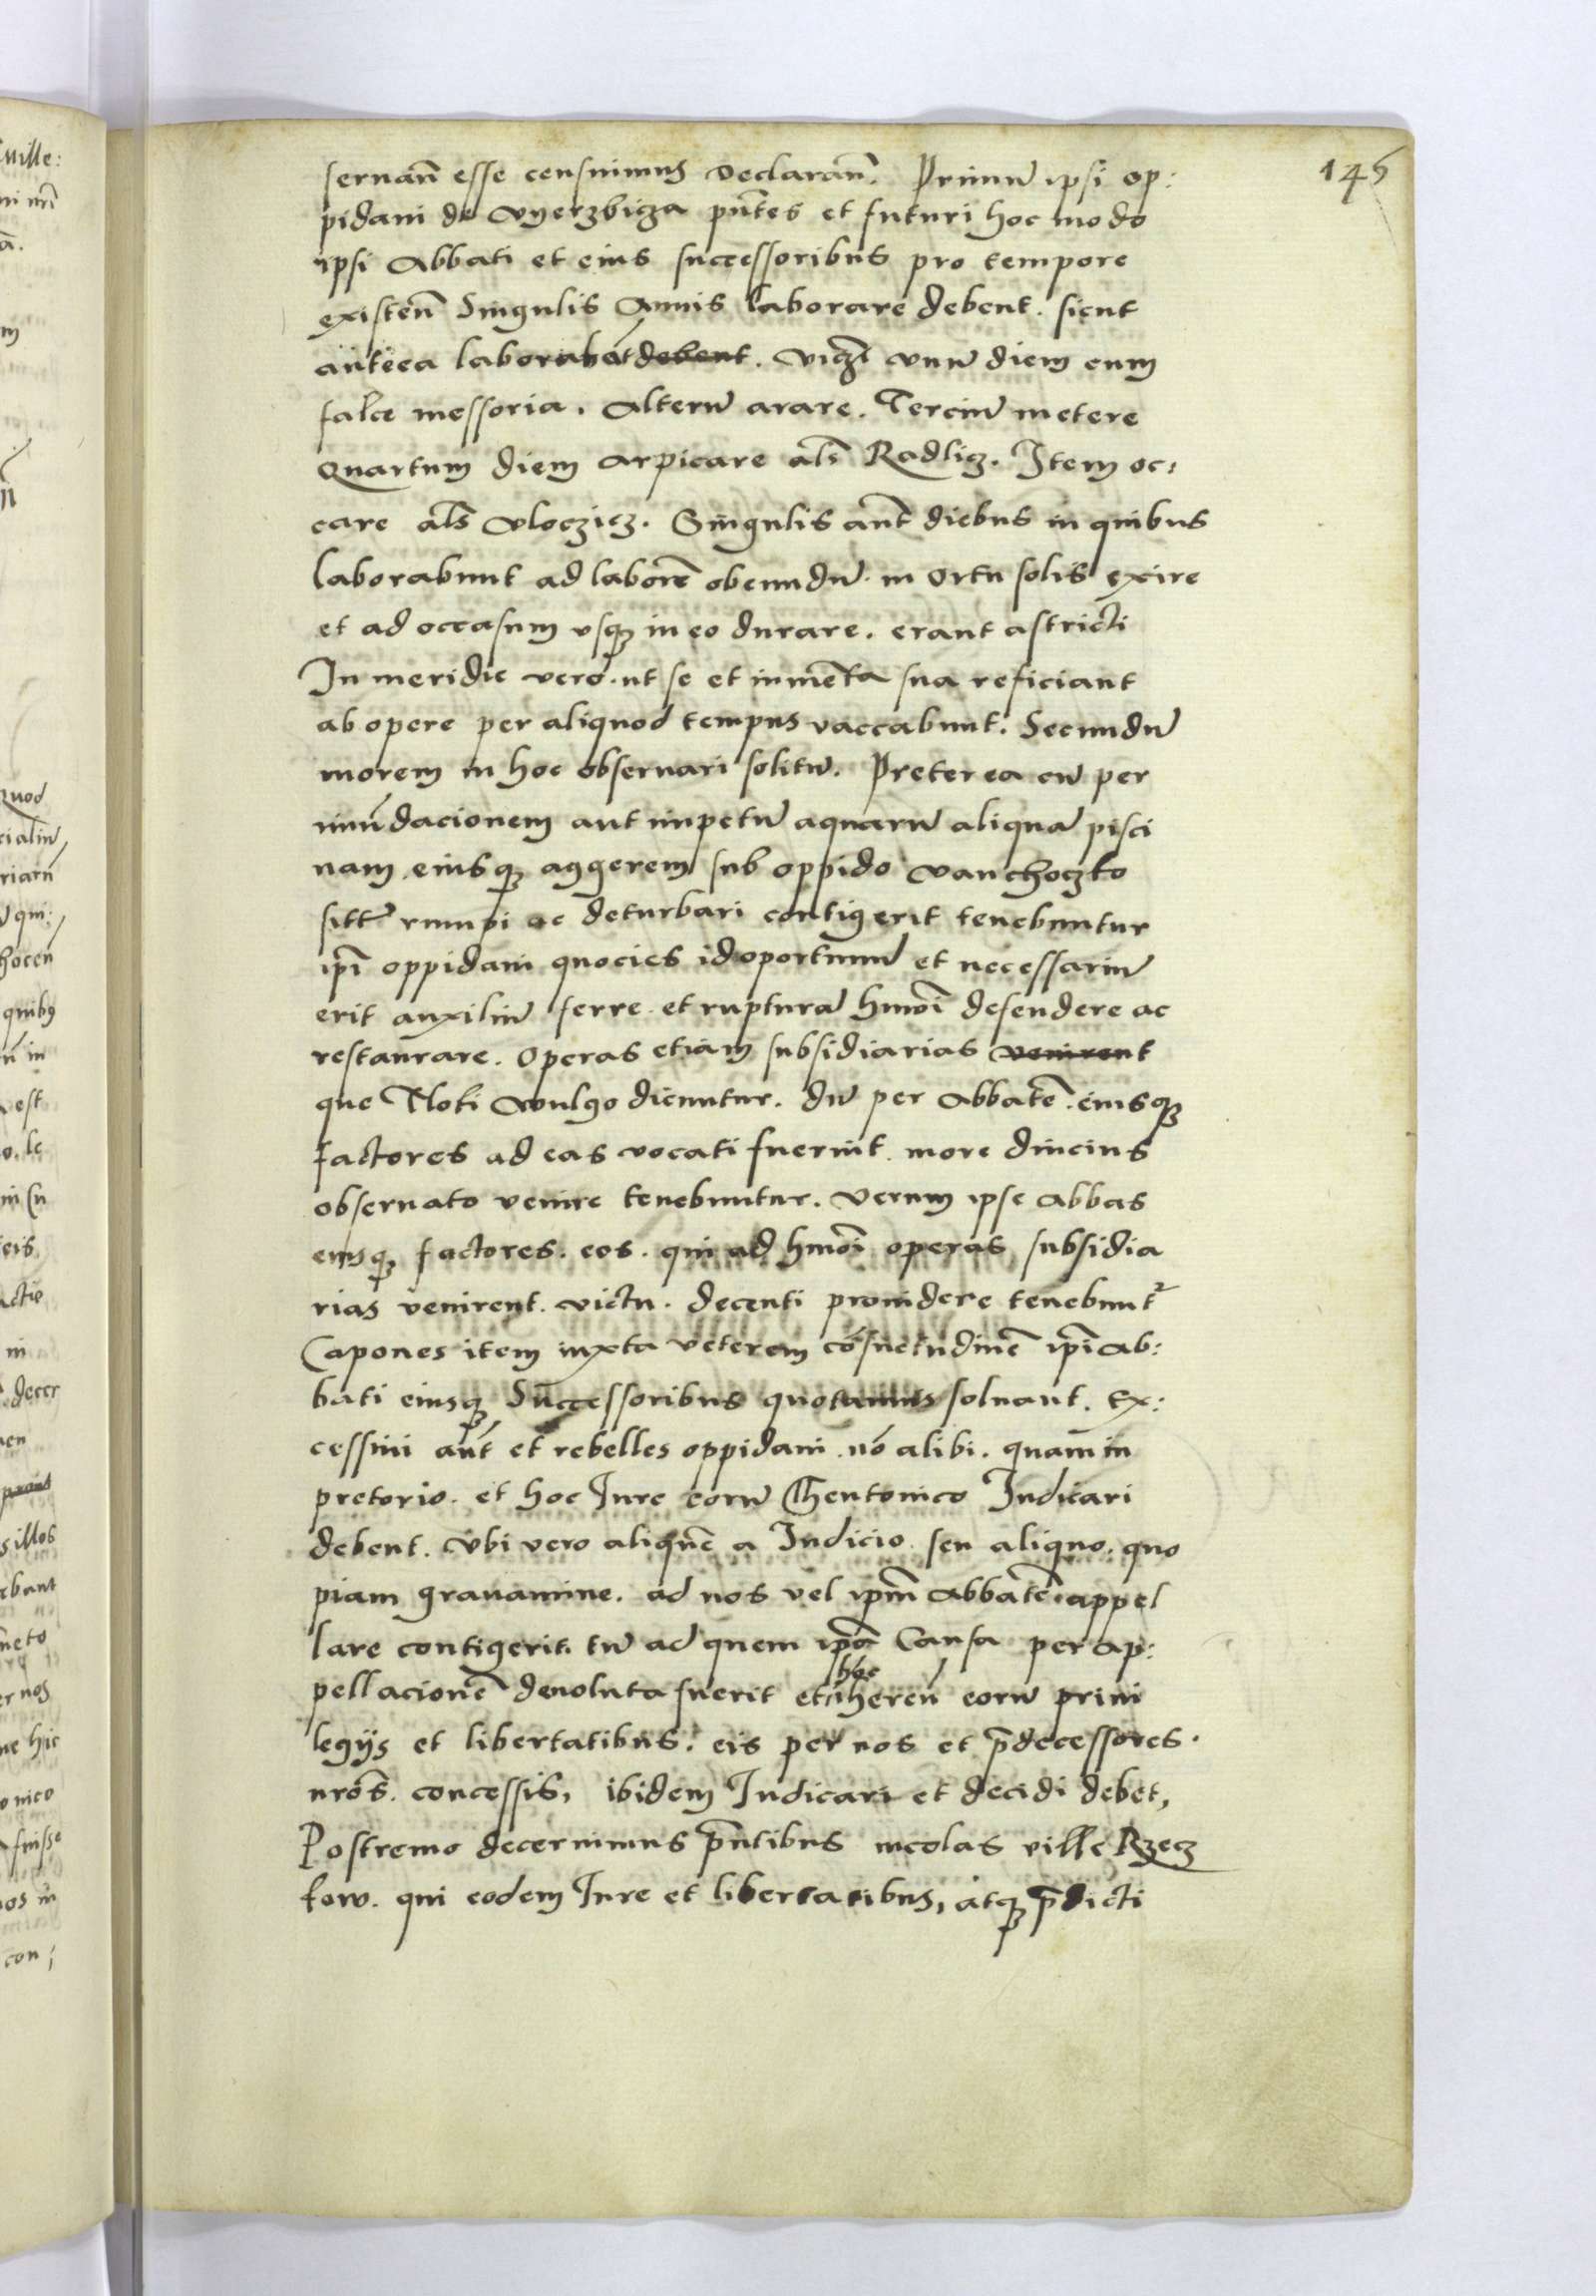 145
seruañ esse censuimus declarañ. Primũ ipsi op:
pidani de Wyerzbicza pñtes et futuri hoc modo
ipsi Abbati et eius successoribus pro tempore
existeñ Singulis Annis laborare debent. sicut
antea laborabãt debent. viczl vnũ diem cum
falce messoria. Alterũ arare. Terciũ metere
Quartum diem arpicare als Radlicz. Item oc:
care als Vloczicz. Singulis aũt diebus in quibus
laborabunt ad laborẽ obeundũ in ortu solis exire
et ad occasum vsqꝫ in eo durare. erant astricti
In meridie vero ut se et iumẽta sua reficiant
ab opere per aliquod tempus vaccabunt. Secundũ
morem in hoc obseruari solitũ. Preterea cũ per
inũdacionem aut impetũ aquarũ aliquã pisci
nam eiusqꝫ aggerem sub oppido Wanchoczko
sittũ rumpi ac deturbari contigerit tenebuntur
ip̃i oppidani quocies id oportunũ et necessariũ
erit auxiliũ ferre et rupturã hmõi defendere ac
restaurare. Operas etiam subsidiarias venirent
que Tloki Wulgo dicuntur. dũ per Abbatẽ eiusqꝫ
factores ad eas vocati fuerint more diucius
obseruato venire tenebuntur. Verum ipse Abbas
eiusqꝫ factores. eos. qui ad hmõi operas subsidia
rias venirent. victu. decenti prouidere tenebunt᷑
Capones item iuxta veterem cõsuetudinẽ ip̃i Ab:
bati eiusqꝫ Successoribus quotannis soluant. Ex:
cessiui aũt et rebelles oppidani nõ alibi. quam in
pretorio. et hoc Iure eorũ Theutonico Iudicari
debent. Vbi vero aliquẽ a Iudicio seu aliquo. quo
piam grauamine. ad nos vel ip̃m Abbatẽ appel
lare contigerit. tũ ad quem ip̃a Causa per ap:
pellacionẽ deuoluta fuerit et hoc iheren̄ eorũ priui
legijs et libertatibus. eis per nos et p̄decessores.
nros̃. concessis, ibidem Iudicari et decidi debet,
Postremo decernimus p̃ntibus incolas ville Rzecz
kow. qui eodem Iure et libertatibus, atqꝫ p̄dicti